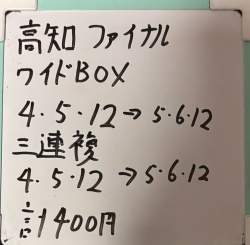 高知 ファイナル
ワイドBOX
4・5・12→5・6・12
三連複
4・5・12 →5・6・12
計1400円